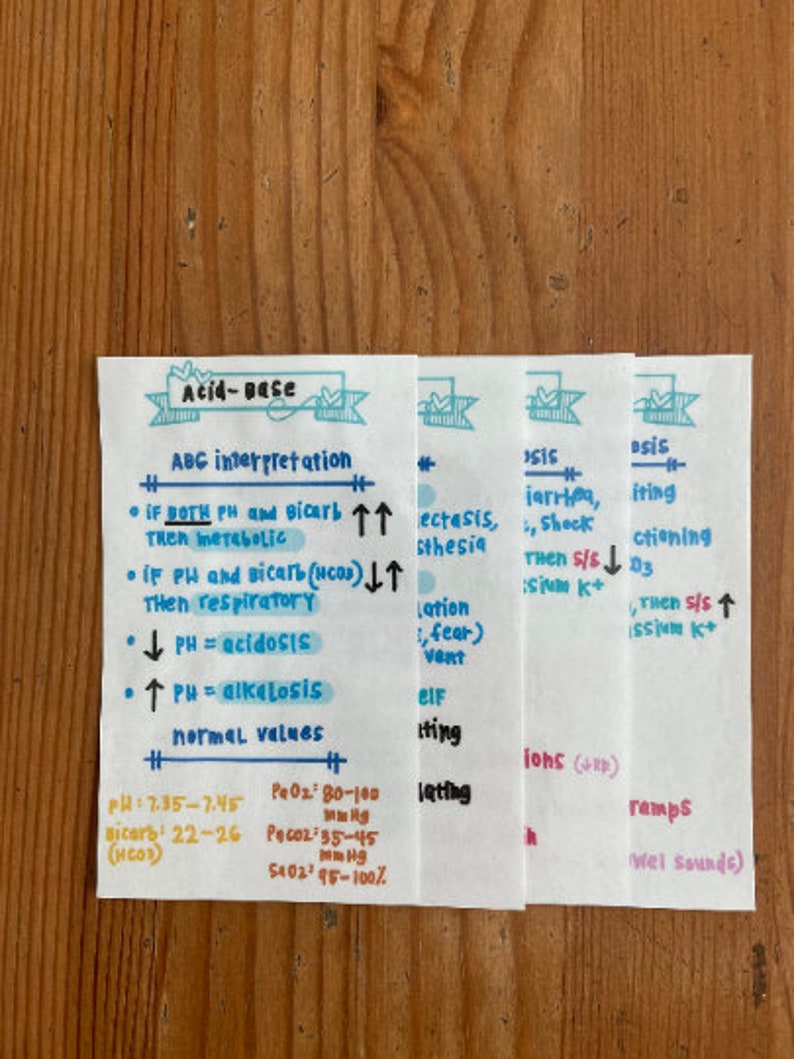 Acid-Base
ABG interpretation
• if BOTH PH and Bicarb ↑↑
Then metabolic
• if PH and Bicarb (HCO3) ↓↑
Then respiratory
• ↓ PH = acidosis
• ↑ PH = alkalosis
normal values
pH: 7.35-7.45
Bicarb: 22-26
(HCO3)
PaO2: 80-100
mmHg
PaCO2: 35-45
mmHg
SaO2: 95-100%
ectasis,
sthesia
lation
, fear)
vent
elf
ating
lating
osis
iarrhea,
, shock
Then S/S ↓
ssium K+
ions (↓RR)
h
osis
iting
ctioning
O3
, Then S/S ↑
assium K+
ramps
wel sounds)